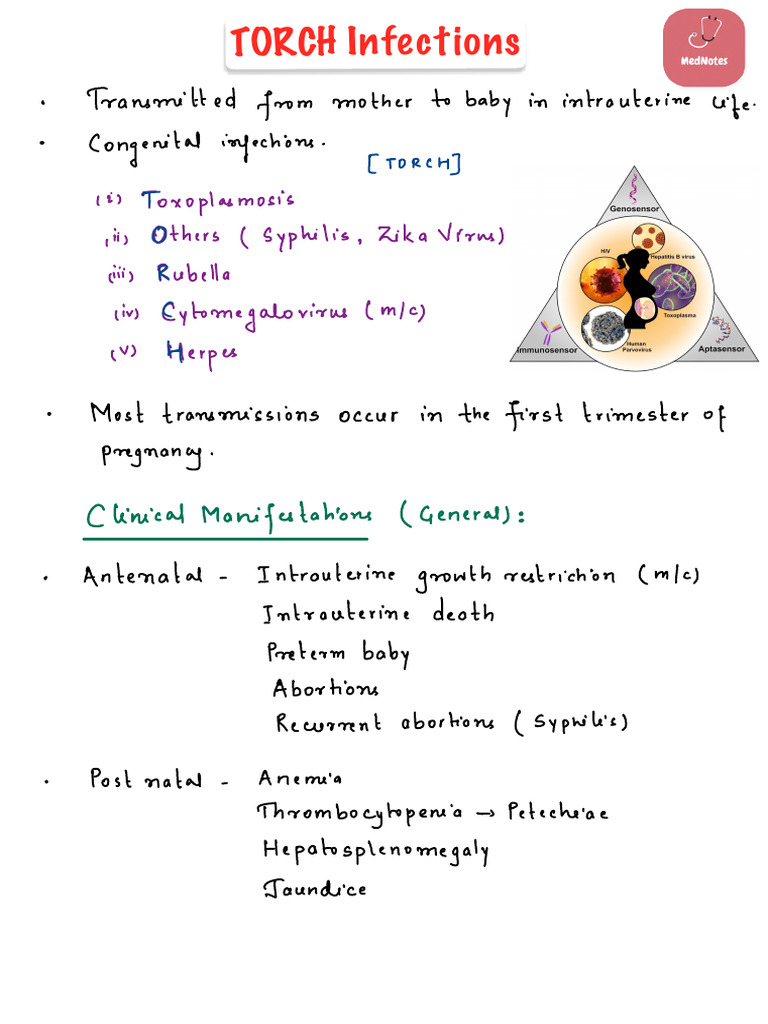 TORCH Infections
MedNotes
. Transmitted from mother to baby in intrauterine life.
. Congenital infections.
[TORCH]
(i) Toxoplasmosis
(ii) Others (Syphilis, Zika Virus)
(iii) Rubella
(iv) Cytomegalovirus (m/c)
(v) Herpes
Genosensor
HIV
Hepatitis B virus
Toxoplasma
Human
Parvovirus
Immunosensor
Aptasensor
. Most transmissions occur in the first trimester of
pregnancy.
Clinical Manifestations (General):
. Antenatal - Intrauterine growth restriction (m/c)
Intrauterine death
Preterm baby
Abortions
Recurrent abortions (Syphilis)
. Post natal - Anemia
Thrombocytopenia → Petecheiae
Hepatosplenomegaly
Jaundice